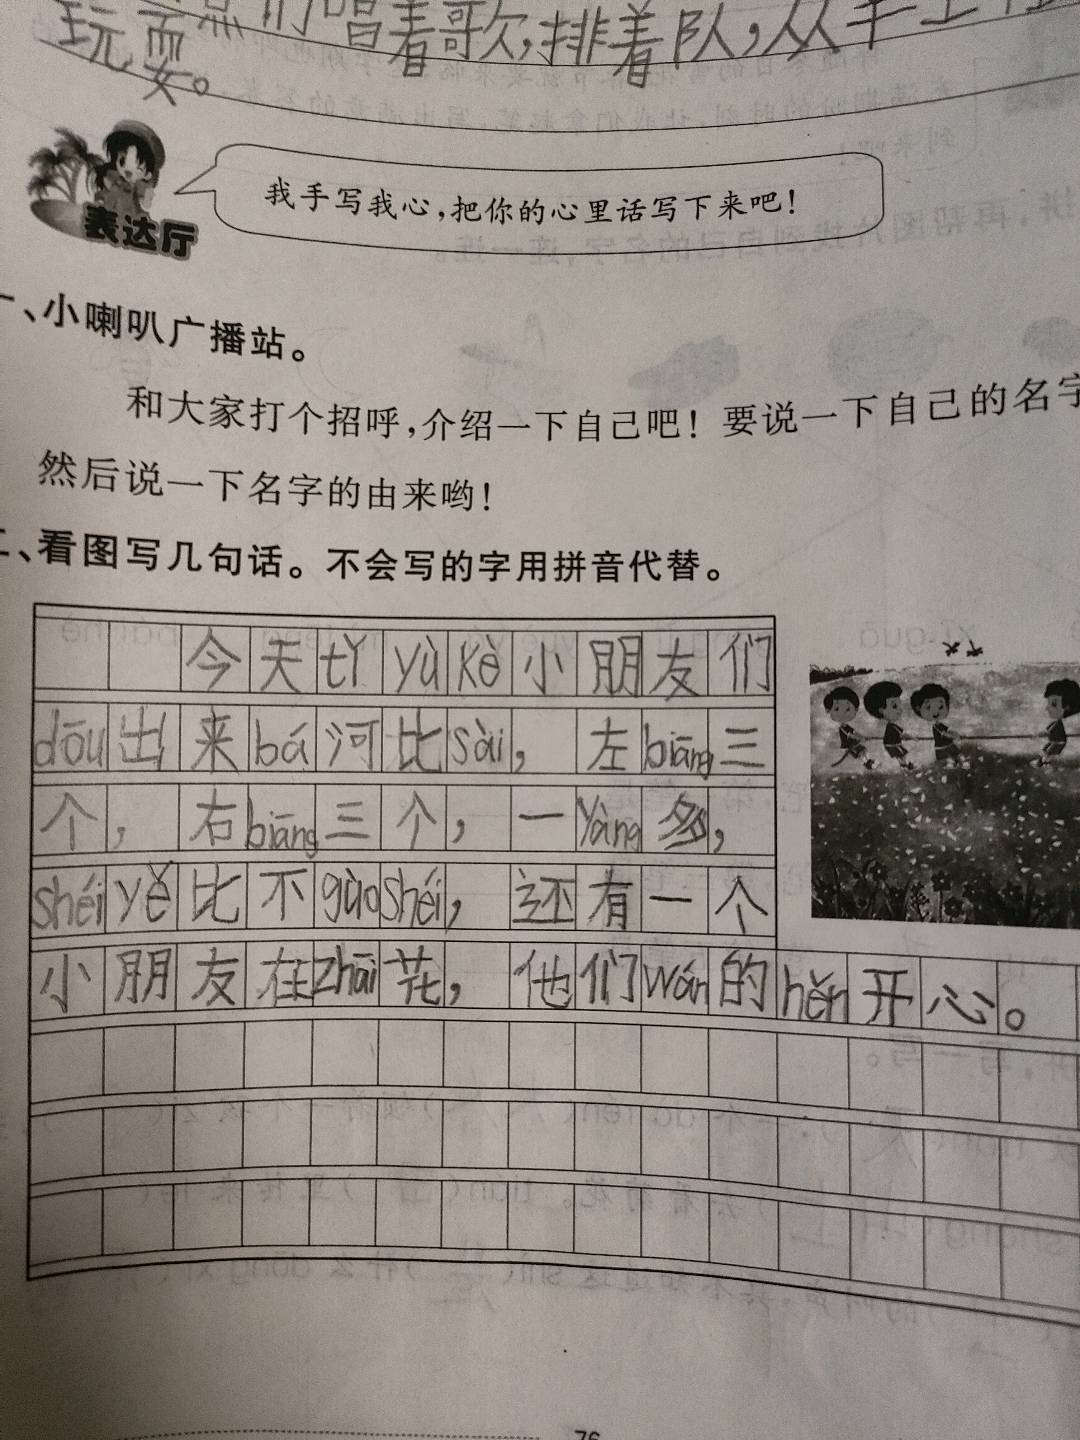 玩耍。们唱着歌,排着队,从
我手写我心,把你的心里话写下来吧!
表达厅
一、小喇叭广播站。
和大家打个招呼,介绍一下自己吧!要说一下自己的名字
然后说一下名字的由来哟!
二、看图写几句话。不会写的字用拼音代替。
今天tǐ yù kè小朋友们
dōu出来bá河比sài,左biāng三
个,右biāng三个,一yàng多,
shéi yě比不guò shéi,还有一个
小朋友在zhāi花,他们wán的hěn开心。
76